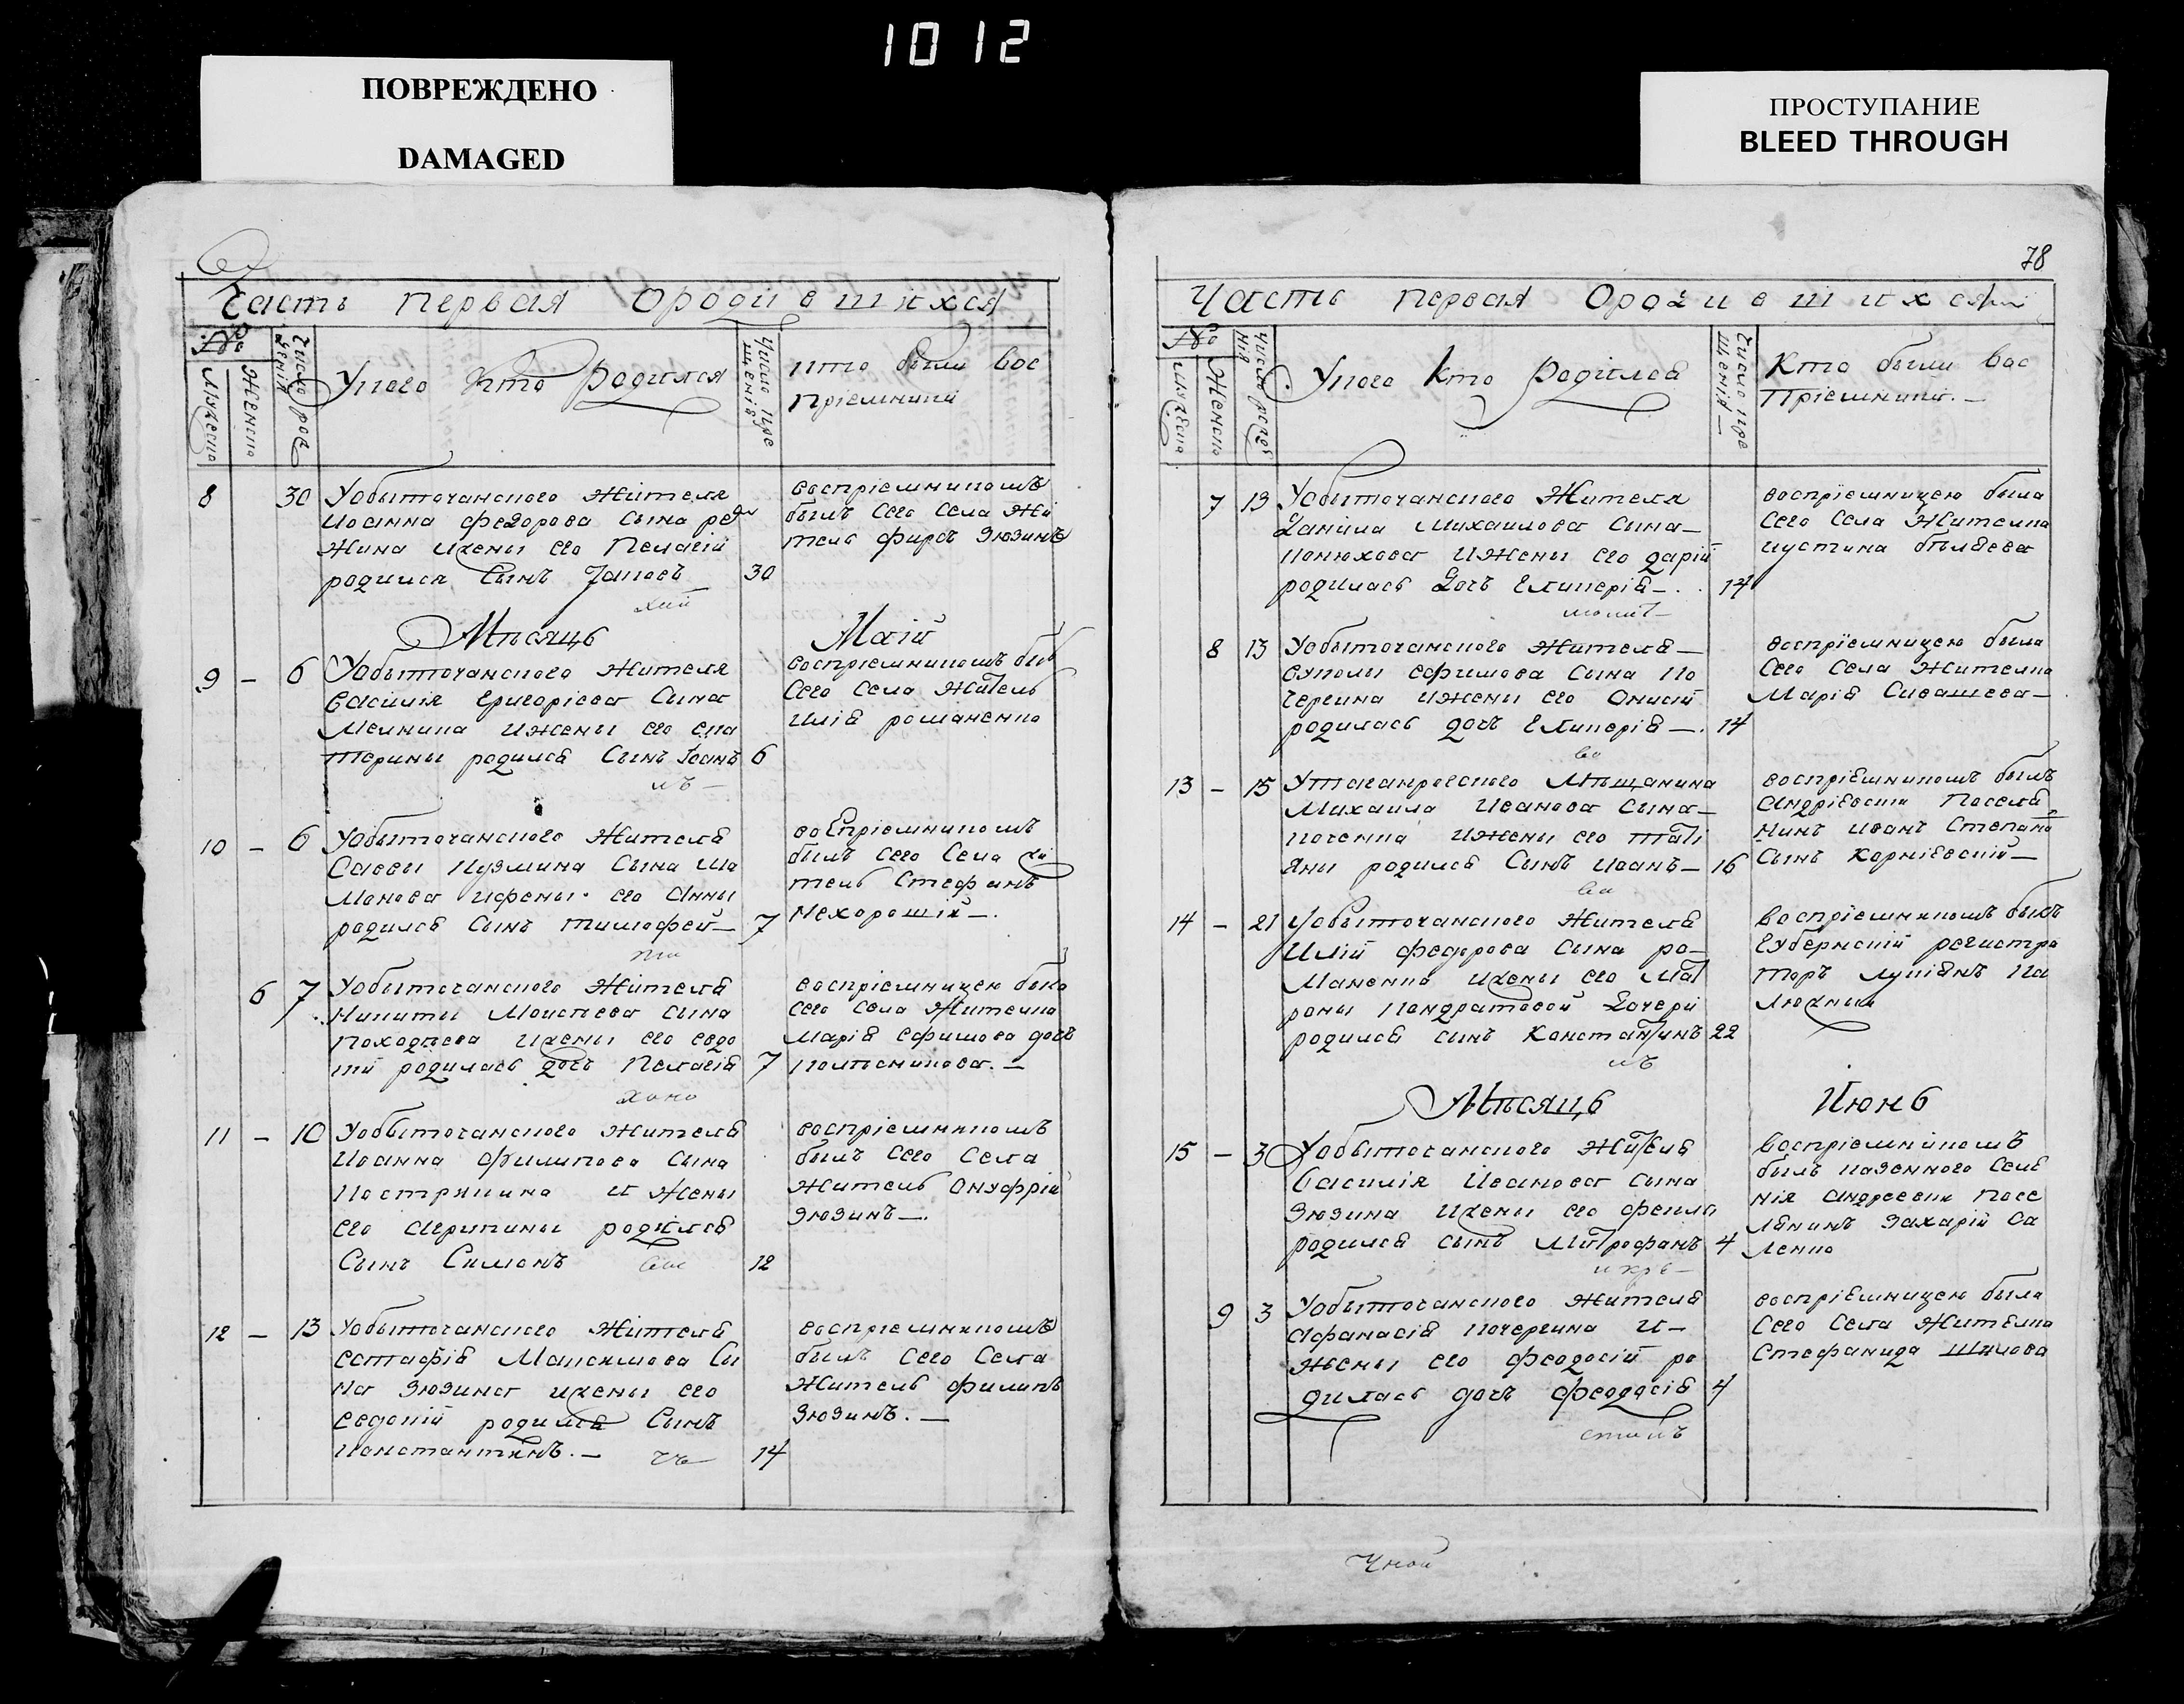 1012
ПОВРЕЖДЕНО
DAMAGED
ПРОСТУПАНИЕ
BLEED THROUGH
Часть первая ородившихся
№
Мужеска
Женска
Число рож
дения
Укого кто родился
Число кре
щенія
кто были вос
пріемники
8 30 Уобыточанского жителя
Иоанна федорова сына ре
жина ижены его Пелагіи
родился сынъ Іаковъ 30
воспріемникомъ
былъ сего села жи
тель фирсъ Зюзинъ
Мѣсяцъ Маій
9 - 6 Уобыточанского жителя
василія григоріева сына
Мелника ижены его ека
терины родился сынъ Іоанъ 6
воспріемникомъ былъ
сего села житель
илія романенко
10 - 6 Уобыточанского жителя
саввы кузмина сына ма
монова ижены его Анны
родился сынъ тимофей 7
воспріемникомъ
былъ сего села жи
тель Стефанъ
Нехорошій.
6 7 Уобыточанского жителя
Никиты Моисеева сына
Походнева ижены его евдо
кіи родилась дочь Пелагія 7
воспріемницею была
сего села жителка
марія ефимова дочь
колѣсникова.
11 - 10 Уобыточанского жителя
Иоанна филипова сына
костркина и жены
его агрипины родился
сынъ Симонъ 12
воспріемникомъ
былъ сего села
житель онуфрій
Зюзинъ.
12 - 13 Уобыточанского жителя
естафія Максимова сы
на Зюзина ижены его
евдокіи родился сынъ
константинъ. 14
воспріемникомъ
былъ сего села
житель филипъ
Зюзинъ.
78
Часть первая ородившихся
№
Мужеска
Женска
Число рож
Укого кто родился
Число кре
щенія
Кто были вос
пріемники.
7 13 Уобыточанского жителя
данила михаилова сына
конюхова ижены его даріи
родилась дочь Гликерія 14
воспріемницею была
сего села жителка
иустина бѣляева
8 13 Уобыточанского жителя
вуколы ефимова сына ко
чергина ижены его онисіи
родилась дочь Гликерія 14
воспріемницею была
сего села жителка
Марія Сивашева
13 - 15 Утаганрогского мѣщанина
Михаила иванова сына
ижены его таті
яны родился сынъ иоанъ 16
воспріемникомъ былъ
андріевски поселя
нинъ иванъ Степана
сынъ корніевскій
14 - 21 Уобыточанского жителя
иліи федорова сына ро
маненка ижены его мат
роны кондратовой дочери
родился сынъ Константинъ 22
воспріемникомъ былъ
губернскій регистра
торъ лукіянъ ка
Мѣсяцъ Июнь
15 - 3 Уобыточанского жителя
василія иванова сына
Зюзина ижены его феклы
родился сынъ Митрофанъ 4
воспріемникомъ
былъ казенного селе
нія андреевки посе
лянинъ захарій са
ленко
9 3 Уобыточанского жителя
афанасія кочергина и
жены его феодосіи ро
дилась дочь феодосія 4
воспріемницею была
сего села жителка
Стефанида шилова